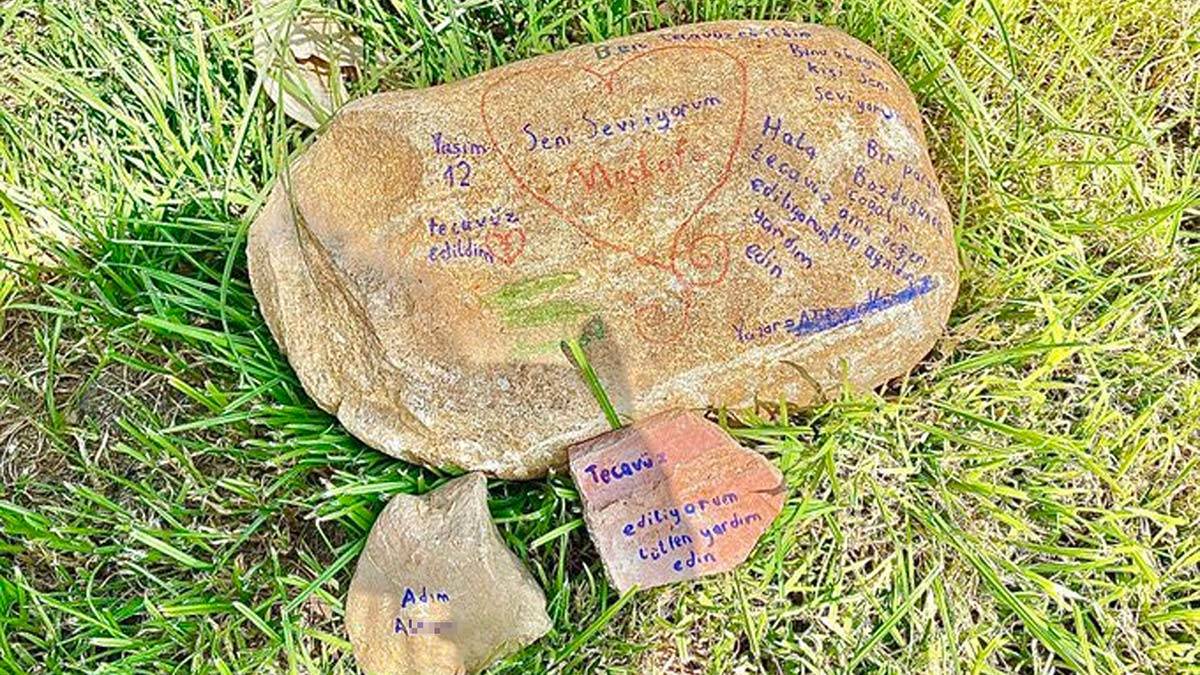 Ben tecavüz edildim
Bunu okuyan
kişi seni
seviyorum
Yaşım
12
Seni Seviiyorum
Mustafa
tecavüz
edildim
Hala
tecavüz
ediliyorum
yardım
edin
Bir para
Bozduğunda
çoğalır
ama değeri
hep aynıdır
Yazar =
Tecavüz
ediliyorum
lütfen yardım
edin
Adım
Al